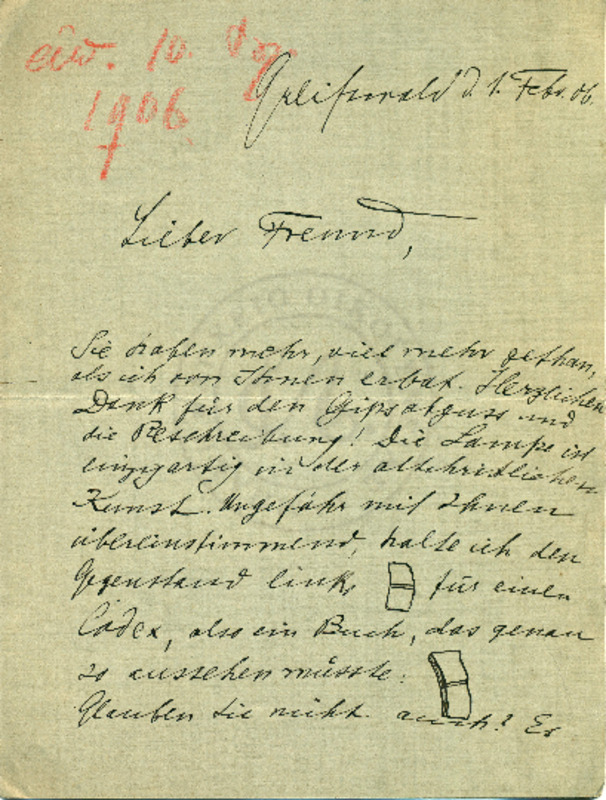 eiw. 10.
1906
Greifswald d. 1. Febr. 06.
Lieber Freund,
Sie haben mehr, viel mehr gethan,
als ich von Ihnen erbat. Herzlichen
Dank für den Gipsabguss und
die Beschreibung! Die Lampe ist
einzigartig in der altchristlichen
Kunst. Ungefähr mit Ihnen
übereinstimmend, halte ich den
Gegenstand links für einen
Codex, also ein Buch, das genau
so aussehen müsste:
Glauben Sie nicht auch? Es